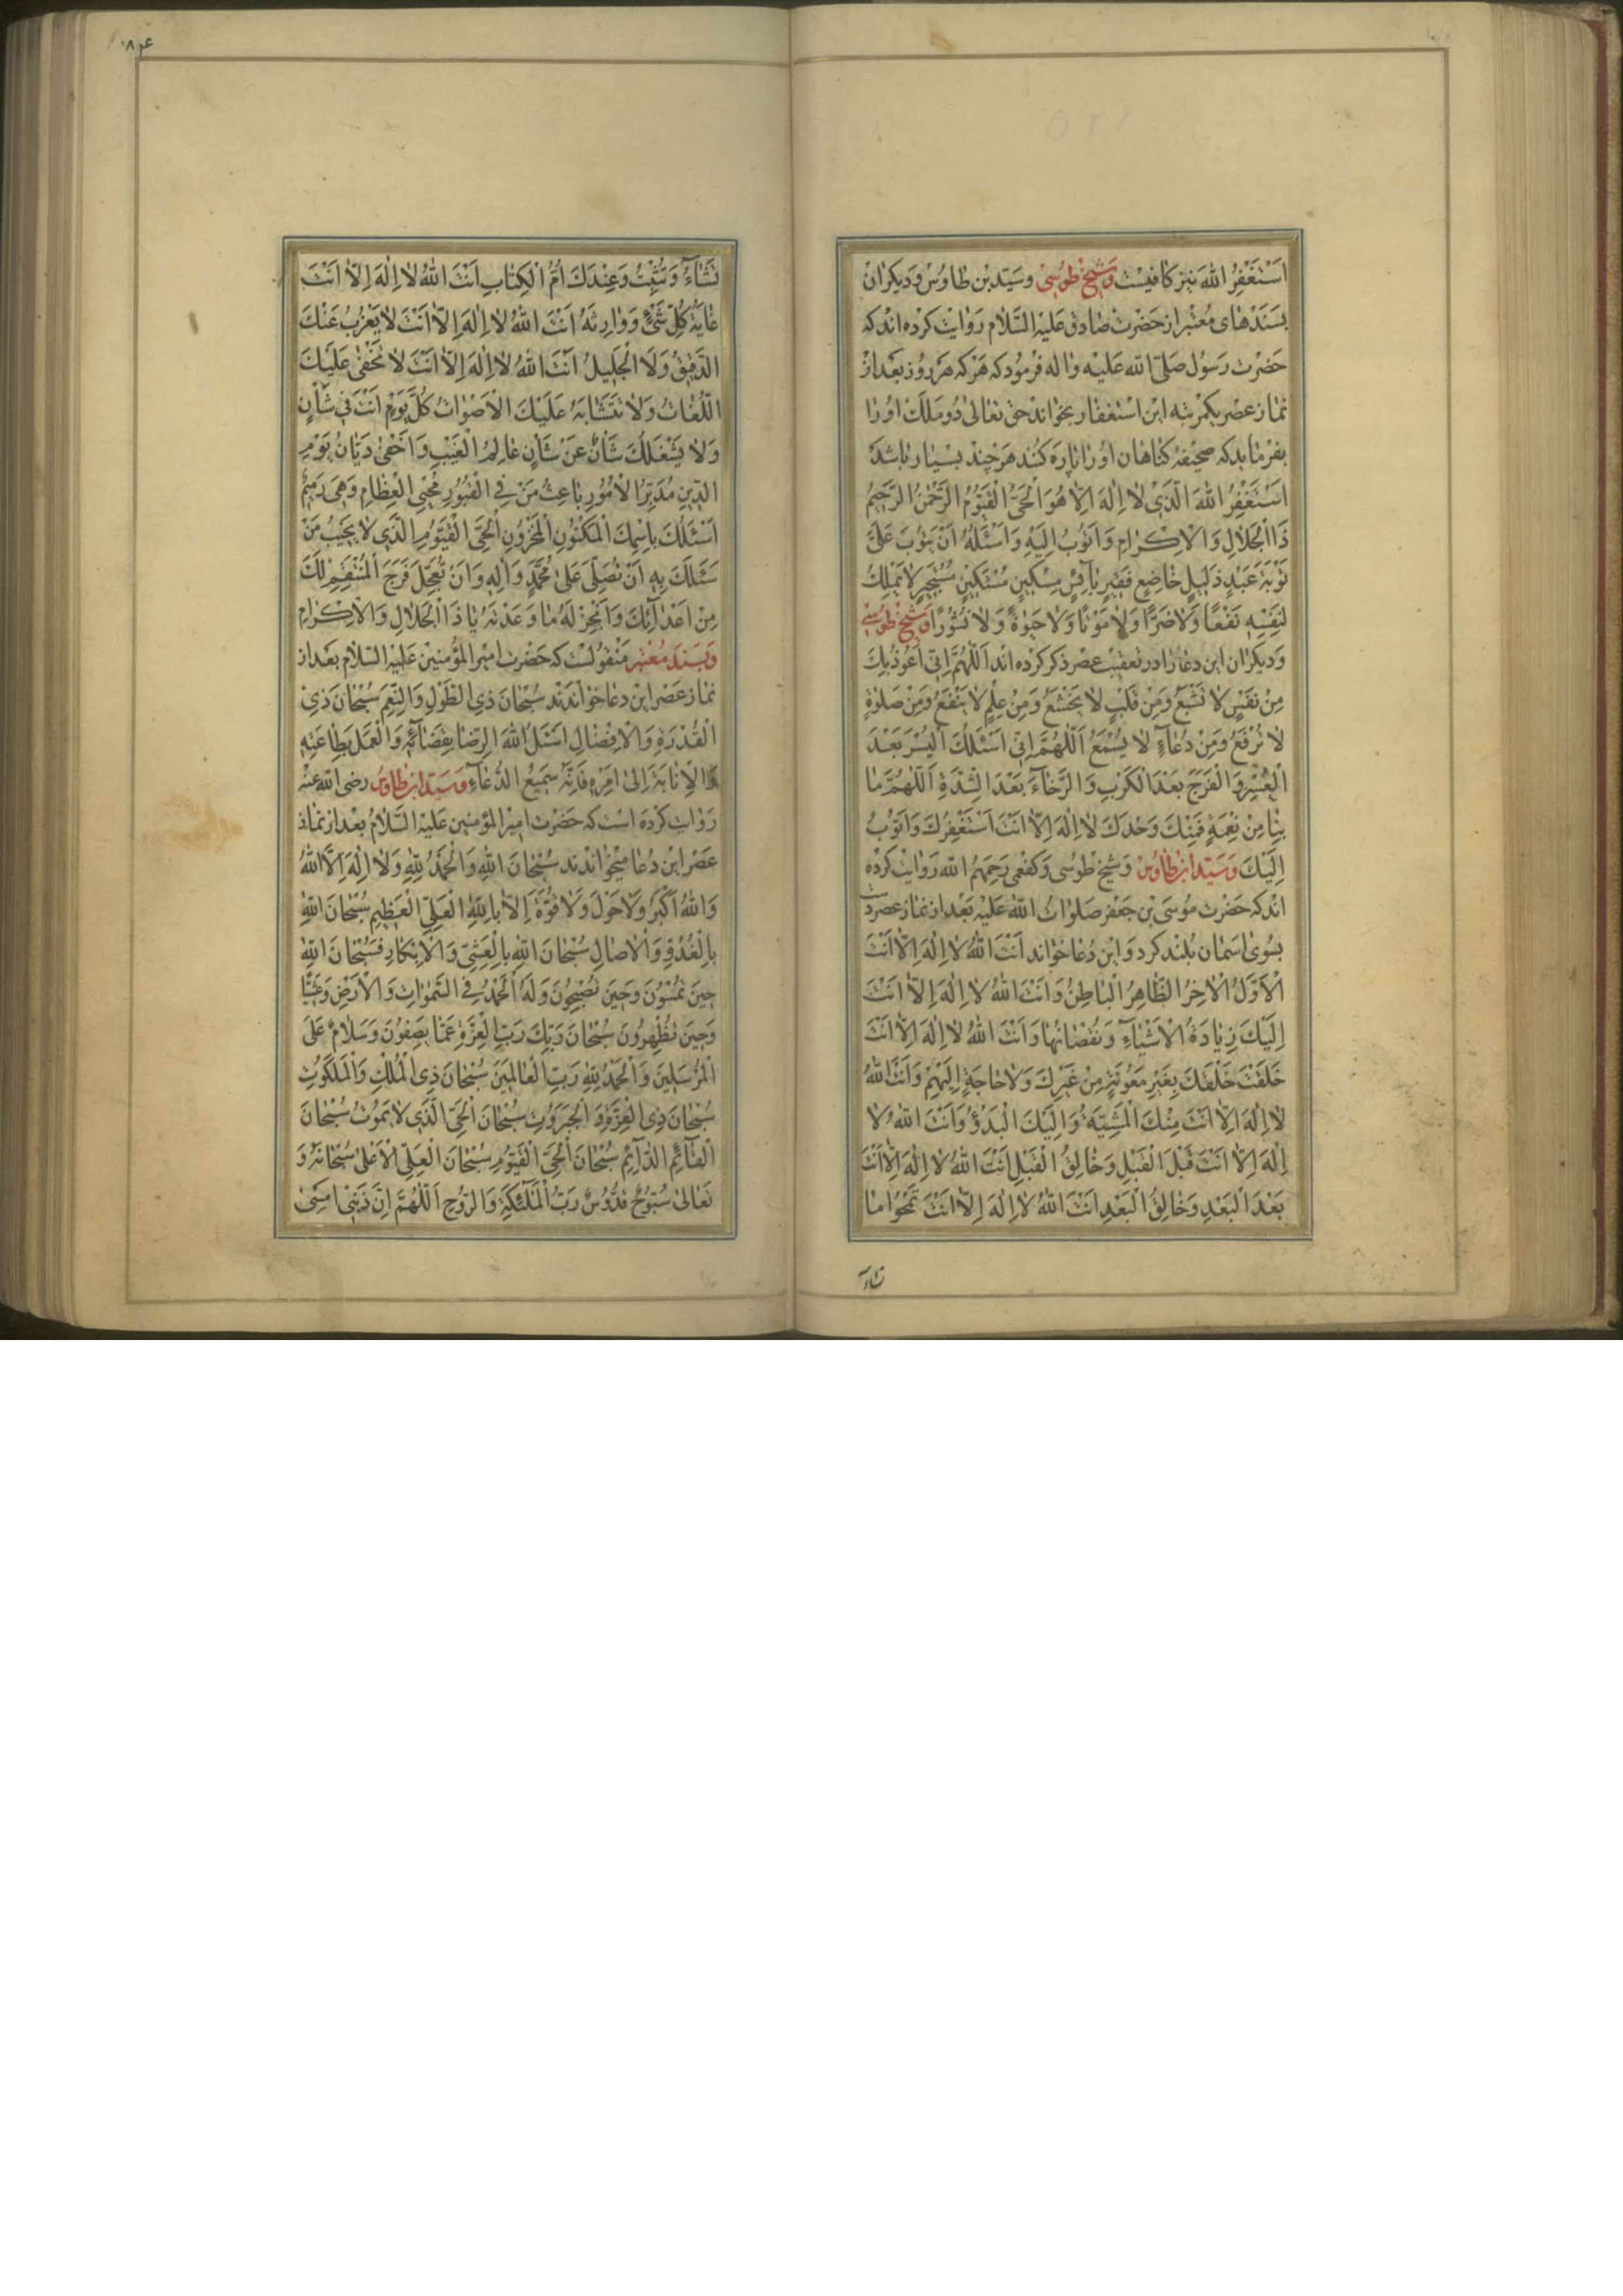 اَسْتَغْفِرُ اللهَ نیز کافیست وَشیخ طوُسی وسَیّد بْن طاوُس وَدیکران
بسَنَدْهای مُعْتبر از حَضْرت صٰادق عَلَیْهِ السَّلام رَوٰایَت کرْده‌انْد که
حَضْرت رَسُول صَلَّی اللّٰه عَلَیْه وٰاله فرمُود که هَرْکه هَرروُز بَعْد ازْ
نمٰاز عصْر یکمرتبه این اسْتغفار بخوٰاند حق تعٰالی دُو مَلَک اورا
بفرْمٰاید که صحیٖفهٔ کناهان اورٰا پٰاره کنند هَرْچند بسْیٰار بٰاشد
اَسْتَغْفِرُ اللهَ الَّذی لا اِلٰهَ اِلّٰا هُوَ اَلْحَیُّ الْقَیُّومُ الرَّحْمٰنُ الرَّحیمُ
ذَا الْجَلالِ وَالْاِکْرٰامِ وَاَتُوبُ اِلَیْهِ وَاَسْئَلُهُ اَنْ یَتُوبَ عَلَیَّ
تَوْبَةَ عَبْدٍ ذَلیلٍ خٰاضِعٍ فَقیرٍ بٰآئِسٍ مِسْکینٍ مُسْتَکینٍ مُسْتَجیرٍ لا یَمْلِکُ
لِنَفْسِهِ نَفْعًا وَلا ضَرًّا وَلا مَوْتًا وَلا حَیٰوةً وَلا نُشُورًا وَشیخ طوُسی
وَدیکران این دعٰارٰا در تعقیٖب عصْر ذکر کرْده انْد اَللّٰهُمَّ اِنّی اَعُوذُ بِکَ
مِنْ نَفْسٍ لا تَشْبَعُ وَمِنْ قَلْبٍ لا یَخْشَعُ وَمِنْ عِلْمٍ لا یَنْفَعُ وَمِنْ صَلٰوةٍ
لا تُرْفَعُ وَمِنْ دُعٰآءٍ لا یُسْمَعُ اَللّٰهُمَّ اِنّی اَسْئَلُکَ الْیُسْرَ بَعْدَ
الْعُسْرِ وَالْفَرَجَ بَعْدَ الْکَرْبِ وَالرَّخٰآءَ بَعْدَ الشِّدَّةِ اَللّٰهُمَّ مٰا
بِنٰا مِنْ نِعْمَةٍ فَمِنْکَ وَحْدَکَ لا اِلٰهَ اِلّا اَنْتَ اَسْتَغْفِرُکَ وَاَتُوبُ
اِلَیْکَ وَسَیّد ابن طاوُس وَشیخ طوُسی وَکفعمی رَحِمَهُمُ اللّٰه رَوٰایَت کرْده
انْد که حَضْرت موُسَی بْن جَعْفر صَلَوٰاتُ اللّٰه عَلَیْه بَعْد از نمٰاز عصر دست
بسُوی اسمٰان بُلنْد کرد وَاین دُعٰا خوٰاند اَنْتَ اللهُ لا اِلٰهَ اِلّا اَنْتَ
الْاَوَّلُ الْاٰخِرُ الظّٰاهِرُ الْبٰاطِنُ وَاَنْتَ اللهُ لا اِلٰهَ اِلّا اَنْتَ
اِلَیْکَ زِیٰادَةُ الْاَشْیٰآءِ وَنُقْصٰانُهٰا وَاَنْتَ اللهُ لا اِلٰهَ اِلّا اَنْتَ
خَلَقْتَ خَلْقَکَ بِغَیْرِ مَعُونَةٍ مِنْ غَیْرِکَ وَلا حٰاجَةٍ اِلَیْهِمْ وَاَنْتَ اللهُ
لا اِلٰهَ اِلّا اَنْتَ مِنْکَ الْمَشِیَّةُ وَاِلَیْکَ الْبَدْؤُ وَاَنْتَ اللهُ لا
اِلٰهَ اِلّا اَنْتَ قَبْلَ الْقَبْلِ وَخٰالِقُ الْقَبْلِ اَنْتَ اللهُ لا اِلٰهَ اِلّا اَنْتَ
بَعْدَ الْبَعْدِ وَخٰالِقُ الْبَعْدِ اَنْتَ اللهُ لا اِلٰهَ اِلّا اَنْتَ تَمْحُوا مٰا
تشآء
تَشٰآءُ وَتُثْبِتُ وَعِنْدَکَ اُمُّ الْکِتٰابِ اَنْتَ اللهُ لا اِلٰهَ اِلّا اَنْتَ
غٰایَةُ کُلِّ شَیْءٍ وَوٰارِثُهُ اَنْتَ اللهُ لا اِلٰهَ اِلّا اَنْتَ لا یَعْزُبُ عَنْکَ
الدَّقیقُ وَلَا الْجَلیلُ اَنْتَ اللهُ لا اِلٰهَ اِلّا اَنْتَ لا تَخْفٰی عَلَیْکَ
اللُّغٰاتُ وَلا تَتَشٰابَهُ عَلَیْکَ الْاَصْوٰاتُ کُلَّ یَوْمٍ اَنْتَ فی شَأْنٍ
وَلا یَشْغَلُکَ شَأْنٌ عَنْ شَأْنٍ عٰالِمُ الْغَیْبِ وَاَخْفٰی دَیّٰانُ یَوْمِ
الدّینِ مُدَبِّرُ الْاُمُورِ بٰاعِثُ مَنْ فِی الْقُبُورِ مُحْیِی الْعِظٰامِ وَهِیَ رَمیمٌ
اَسْئَلُکَ بِاسْمِکَ الْمَکْنُونِ الْمَخْزُونِ اَلْحَیِّ الْقَیُّومِ الَّذی لا یَخیبُ مَنْ
سَئَلَکَ بِهِ اَنْ تُصَلِّیَ عَلٰی مُحَمَّدٍ وَاٰلِهِ وَاَنْ تُعَجِّلَ فَرَجَ الْمُنْتَقِمِ لَکَ
مِنْ اَعْدٰآئِکَ وَاَنْجِزْ لَهُ مٰا وَعَدْتَهُ یٰا ذَا الْجَلالِ وَالْاِکْرٰامِ
وَبسَند مُعْتبر مَنقولست که حَضْرت امیر المؤمنین عَلَیْهِ السَّلام بَعْد از
نمٰاز عَصْر این دعٰا خوٰاندند سُبْحٰانَ ذِی الطَّوْلِ وَالنِّعَمِ سُبْحٰانَ ذِی
الْقُدْرَةِ وَالْاِفْضٰالِ اَسْئَلُ اللهَ الرِّضٰا بِقَضٰآئِهِ وَالْعَمَلَ بِطٰاعَتِهِ
وَالْاِنٰابَةَ اِلٰی اَمْرِهِ فَاِنَّهُ سَمیعُ الدُّعٰآءِ وَسَیّد ابن طاوُس رضی اللّٰه عنْه
رَوٰایت کرْده است که حَضْرت امیرالمؤمنین عَلَیْهِ السَّلامُ بعْد از نمٰاز
عَصْر این دُعٰا میخوٰاندند سُبْحٰانَ اللهِ وَالْحَمْدُ لِلّٰهِ وَلا اِلٰهَ اِلَّا اللهُ
وَاللهُ اَکْبَرُ وَلا حَوْلَ وَلا قُوَّةَ اِلّا بِاللهِ الْعَلِیِّ الْعَظیمِ سُبْحٰانَ اللهِ
بِالْغُدُوِّ وَالْاٰصٰالِ سُبْحٰانَ اللهِ بِالْعَشِیِّ وَالْاِبْکٰارِ فَسُبْحٰانَ اللهِ
حینَ تُمْسُونَ وَحینَ تُصْبِحُونَ وَلَهُ الْحَمْدُ فِی السَّمٰوٰاتِ وَالْاَرْضِ وَعَشِیًّا
وَحینَ تُظْهِرُونَ سُبْحٰانَ رَبِّکَ رَبِّ الْعِزَّةِ عَمّٰا یَصِفُونَ وَسَلامٌ عَلَی
الْمُرْسَلینَ وَالْحَمْدُ لِلّٰهِ رَبِّ الْعٰالَمینَ سُبْحٰانَ ذِی الْمُلْکِ وَالْمَلَکُوتِ
سُبْحٰانَ ذِی الْعِزَّةِ وَالْجَبَرُوتِ سُبْحٰانَ الْحَیِّ الَّذی لا یَمُوتُ سُبْحٰانَ
الْقٰآئِمِ الدّٰآئِمِ سُبْحٰانَ الْحَیِّ الْقَیُّومِ سُبْحٰانَ الْعَلِیِّ الْاَعْلٰی سُبْحٰانَهُ وَ
تَعٰالٰی سُبُّوحٌ قُدُّوسٌ رَبُّ الْمَلٰئِکَةِ وَالرُّوحِ اَللّٰهُمَّ اِنَّ ذَنْبی اَمْسٰی